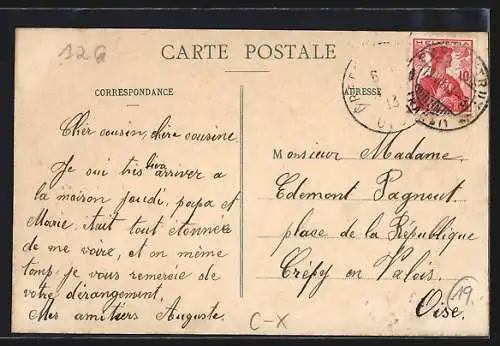 126
CARTE POSTALE
CORRESPONDANCE
ADRESSE
HELVETIA
10
Cher cousin, chère cousine
Je sui très bien arriver a
la maison jeudi, papa et
Marie. était tout étonnée
de me voire, et en même
temp je vous remercie de
votre dérangement.
Mes amitiers Auguste.
Monsieur Madame
Edemont Pagnout
place de la République
Crépy en Valois.
Oise.
19.
C-X